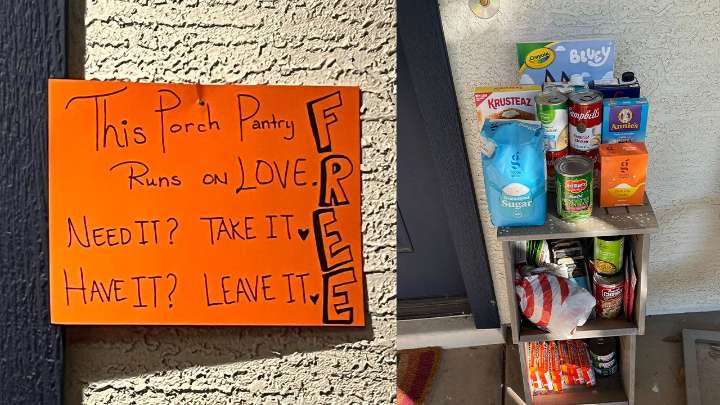 This Porch Pantry
Runs on LOVE.
NEED IT? TAKE IT
HAVE IT? LEAVE IT
FREE
Crayola
BLUEY
KRUSTEAZ
Campbell's
ANNIE'S
Sugar
Del Monte